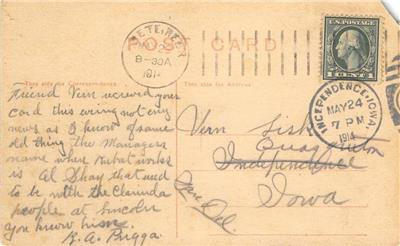 POST CARD
This side for Correspondence
8-30A
191
1 CENT
INDEPENDENCE, IOWA.
MAY 24
7 PM
1914
Friend Vern received your
card this evning not eny
news as I know of same
old thing The Managers
name where Rubat works
is Al Shay that used to
be with the Clarinda
people at Lincoln
you know him.
R. A. Prigga.
Vern
Independence
Iowa
Gen Del.